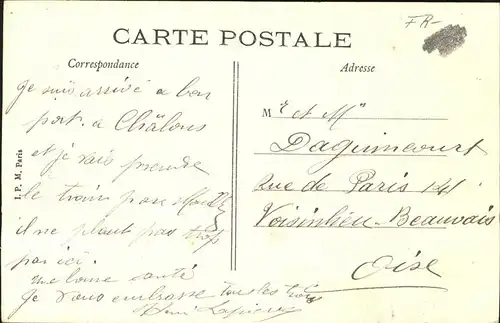 FR-
CARTE POSTALE
Correspondance
Adresse
Je suis arrivé a bon
port a Châlons
et je vais prendre
le train pour
il ne pleut pas trop
par ici.
une bonne santé
Je vous embrasse tous les trois
Henri
Mr et Mme
Daguincourt
Rue de Paris 141
Voisinlieu-Beauvais
Oise
I. P. M, Paris